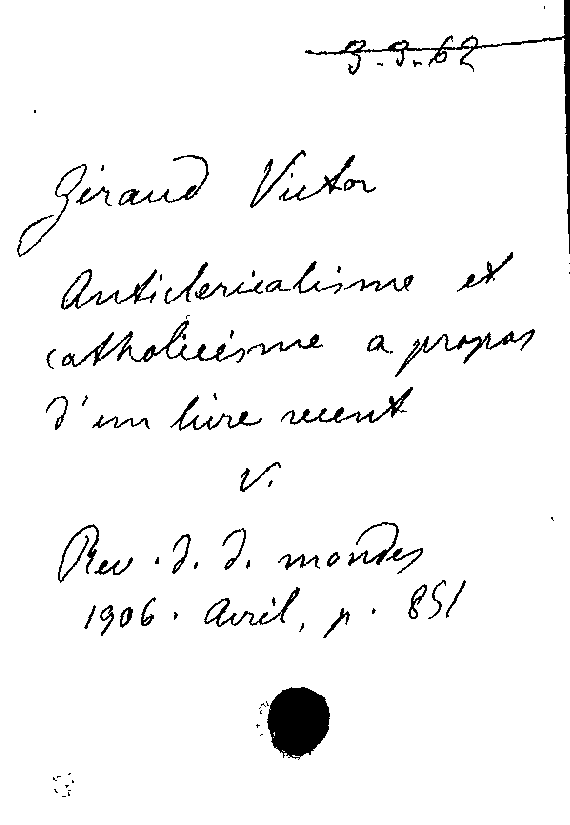 3.3.62
Giraud Victor
Anticlericalisme et
catholicisme a propos
d'un livre recent
v.
Rev. d. d. mondes
1906. Avril, p. 851